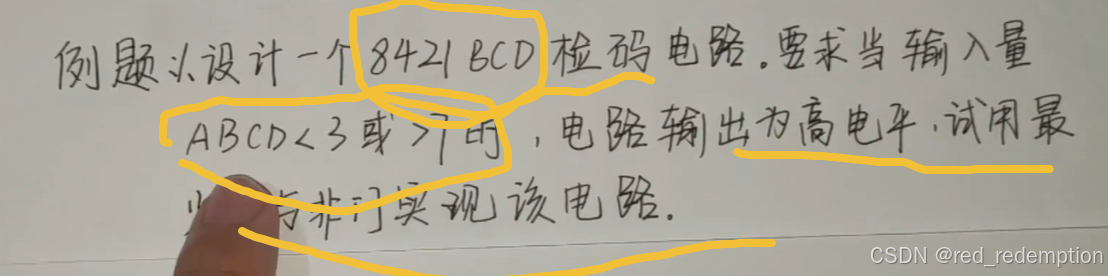 例题1、设计一个8421BCD检码电路.要求当输入量
ABCD<3或>7时,电路输出为高电平,试用最
与非门实现该电路.
CSDN @red_redemption